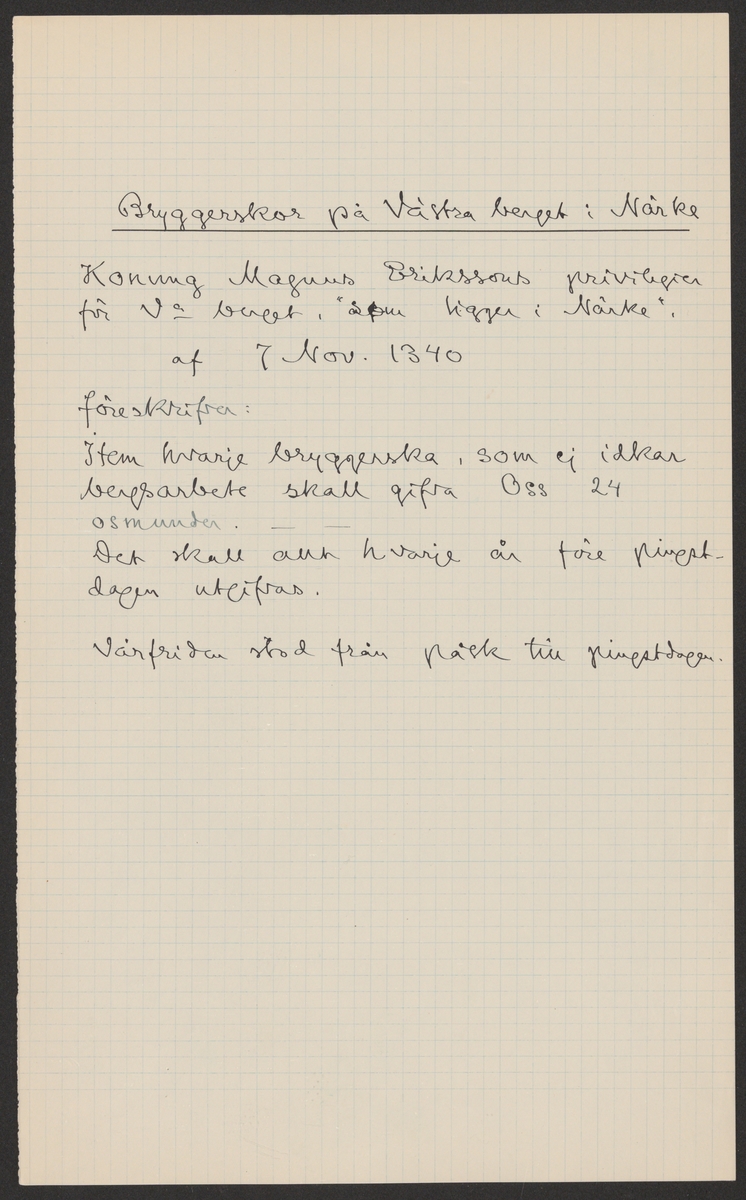 Bryggerskor på Västra berget i Närke
Konung Magnus Erikssons privilegier
för Va berget, "som ligger i Närke",
af 7 Nov. 1340
föreskrifva:
Item hvarje bryggerska, som ej idkar
bergsarbete skall gifva Oss 24
osmunder. — —
Det skall allt hvarje år före pingst-
dagen utgifvas.
Vårfriden stod från påsk till pingstdagen.